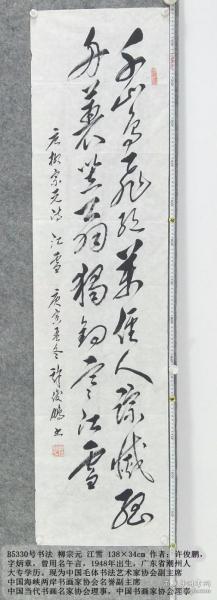 千山鸟飞绝萬径人踪滅孤
舟蓑笠翁獨钓寒江雪
唐柳宗元诗 江雪 庚寅冬 许俊鹏书
B5330号书法 柳宗元 江雪 138×34cm 作者：许俊鹏，
字炳章，曾用名午言，1948年出生，广东省潮州人
大专学历。现为中国毛体书法艺术家协会副主席
中国海峡两岸书画家协会名誉副主席
中国当代书画名家协会理事，中国书画家协会理事